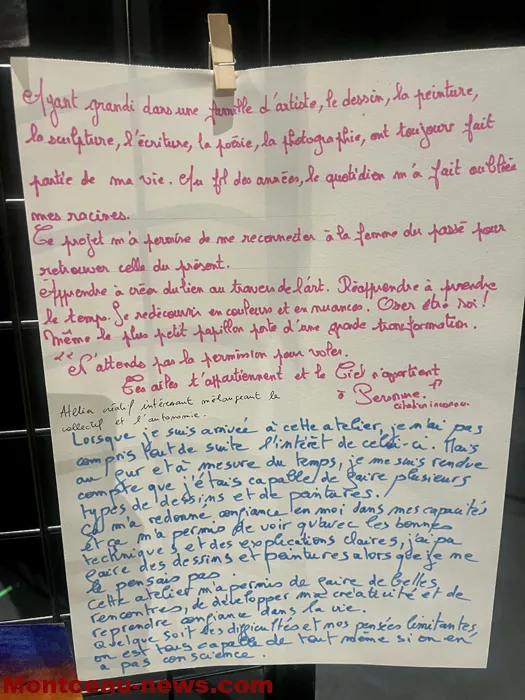 Ayant grandi dans une famille d'artiste, le dessin, la peinture,
la sculpture, l'écriture, la poésie, la photographie, ont toujours fait
partie de ma vie. Au fil des années, le quotidien m'a fait oubliée
mes racines.
Ce projet m'a permise de me reconnecter à la femme du passé pour
retrouver celle du présent.
Apprendre à créer du lien au travers de l'art. Réapprendre à prendre
le temps. Se redécouvrir en couleurs et en nuances. Oser être soi !
Même le plus petit papillon porte d'une grande transformation.
" N'attends pas la permission pour voler.
Tes ailes t'appartiennent et le Ciel n'appartient
à Personne. "
citation inconnue.
Atelier créatif intéressant mélangeant le
collectif et l'autonomie.
Lorsque je suis arrivée à cette atelier, je n'ai pas
compris tout de suite l'intérêt de celui-ci. Mais
au fur et à mesure du temps, je me suis rendue
compte que j'étais capable de faire plusieurs
types de dessins et de peintures.
Ça m'a redonné confiance en moi dans mes capacités
et ça m'a permis de voir qu'avec les bonnes
techniques et des explications claires, j'ai pu
faire des dessins et peintures alors que je ne
le pensais pas.
Cette atelier m'a permis de faire de belles
rencontres, de développer ma créativité et de
reprendre confiance dans la vie.
Quelque soit les difficultés et nos pensées limitantes,
on est tous capable de tout même si on en
a pas conscience.
Montceau-news.com